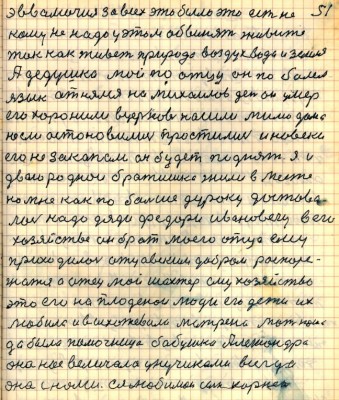 51
за всех это было это ест не
кому не надо у этом обвинят живите
так как живет природа воздух вода и земля
А дедушка мой по отцу он по болел
язык отняля на михайлов ден он умер
его хоронили в церков нашли мимо дома
несли остоновилис простилис и човека
его не закапали он будет поднят. я и
двоюродной братишка жили в месте
но мне как по больше дураку достова
лос надо дяди федори ивановечу в его
хозяйстве он брат моего отца ему
приходилос отцавским добром распоре-
жатся а отец мой шахтер ему хозяйство
это его на плоденой люди его дети их
любила и выхожевала матрена мат наша
да была помочница бабушка Александра
она нас величала унучиками всегда
она с нами. с любимой